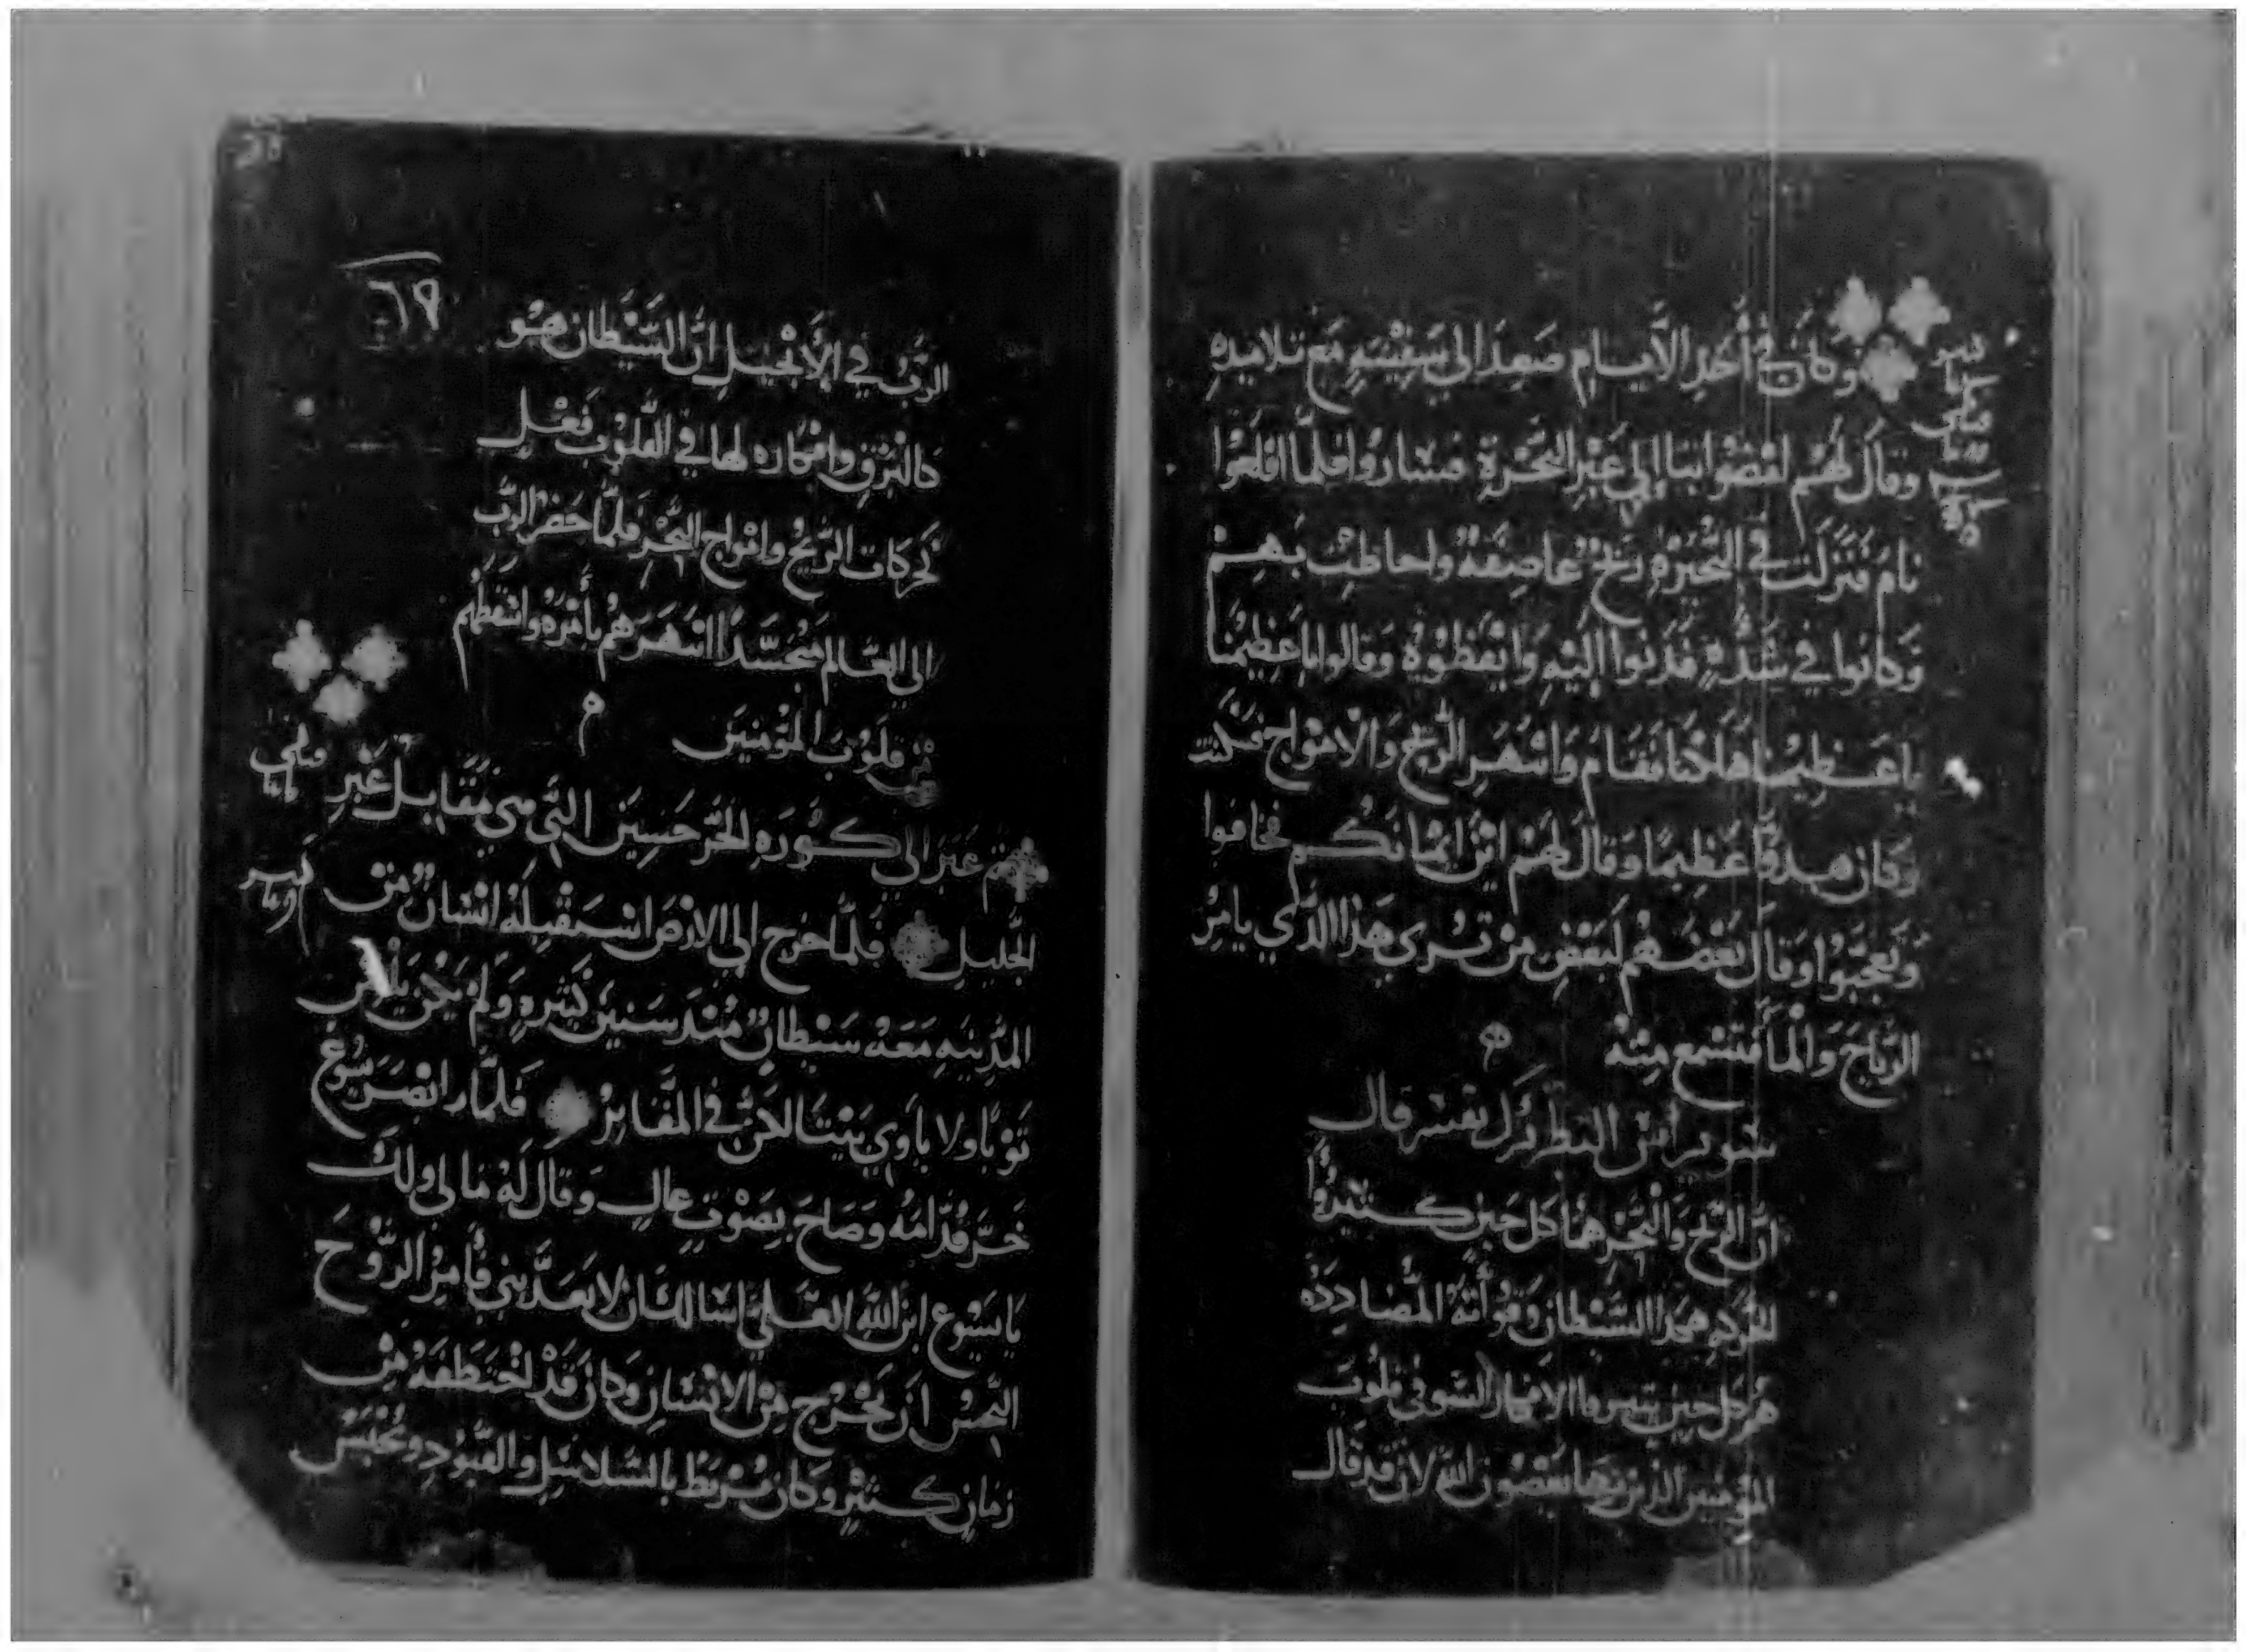 وكان في أحد الأيام صعد إلي سفينه مع تلاميده
وقال لهم امضوا بنا إلي عبر البحيرة فساروا فلما اقلعوا
نام فنزلت في البحيره ريح عاصفة واحاطت بهم
وكانوا في شدة فدنوا إليه وايقظوه وقالوا يا عظيمنا
يا عظيمنا هلكنا فقام وانتهر الريح والامواج فسكنت
وكان هدوا عظيما وقال لهم اين ايمانكم فخافوا
وتعجبوا وقال بعضهم لبعض من تري هذا الذي يامر
الرياح والما فتسمع منه
البطريرك يفسر قال
ان الريح والبحر هما كل حين
الشيطان وقوأته المضادده
هم كل حين الافكار السو في قلوب
المومنين الذين بها يغضبون الله لان قد قال
٦٩
الرب في الإنجيل ان الشيطان هو
كالبرق وافكاره لها في القلوب فعل
كحركات الريح وامواج البحر فلما حضر الرب
الي العالم متجسدا انتهرهم بأمره
من قلوب المومنين
ثم عبر الي كوره الجرجسيين التي هي مقابل عبر
الجليل فلما خرج إلي الارض استقبله انسان من
المدينه معه شيطان منذ سنين كثيره ولم يكن يلبس
ثوبا ولا ياوي بيتا لاكن في المقابر فلما ابصر يسوع
خر قدامه وصاح بصوت عال وقال له ما لي ولك
يا يسوع ابن الله العلي اسالك ان لا تعذبني فأمر الروح
النجس ان يخرج من الانسان وكان قد اختطفه من
زمان كثير وكان يربط بالسلاسل والقيود ويحبس